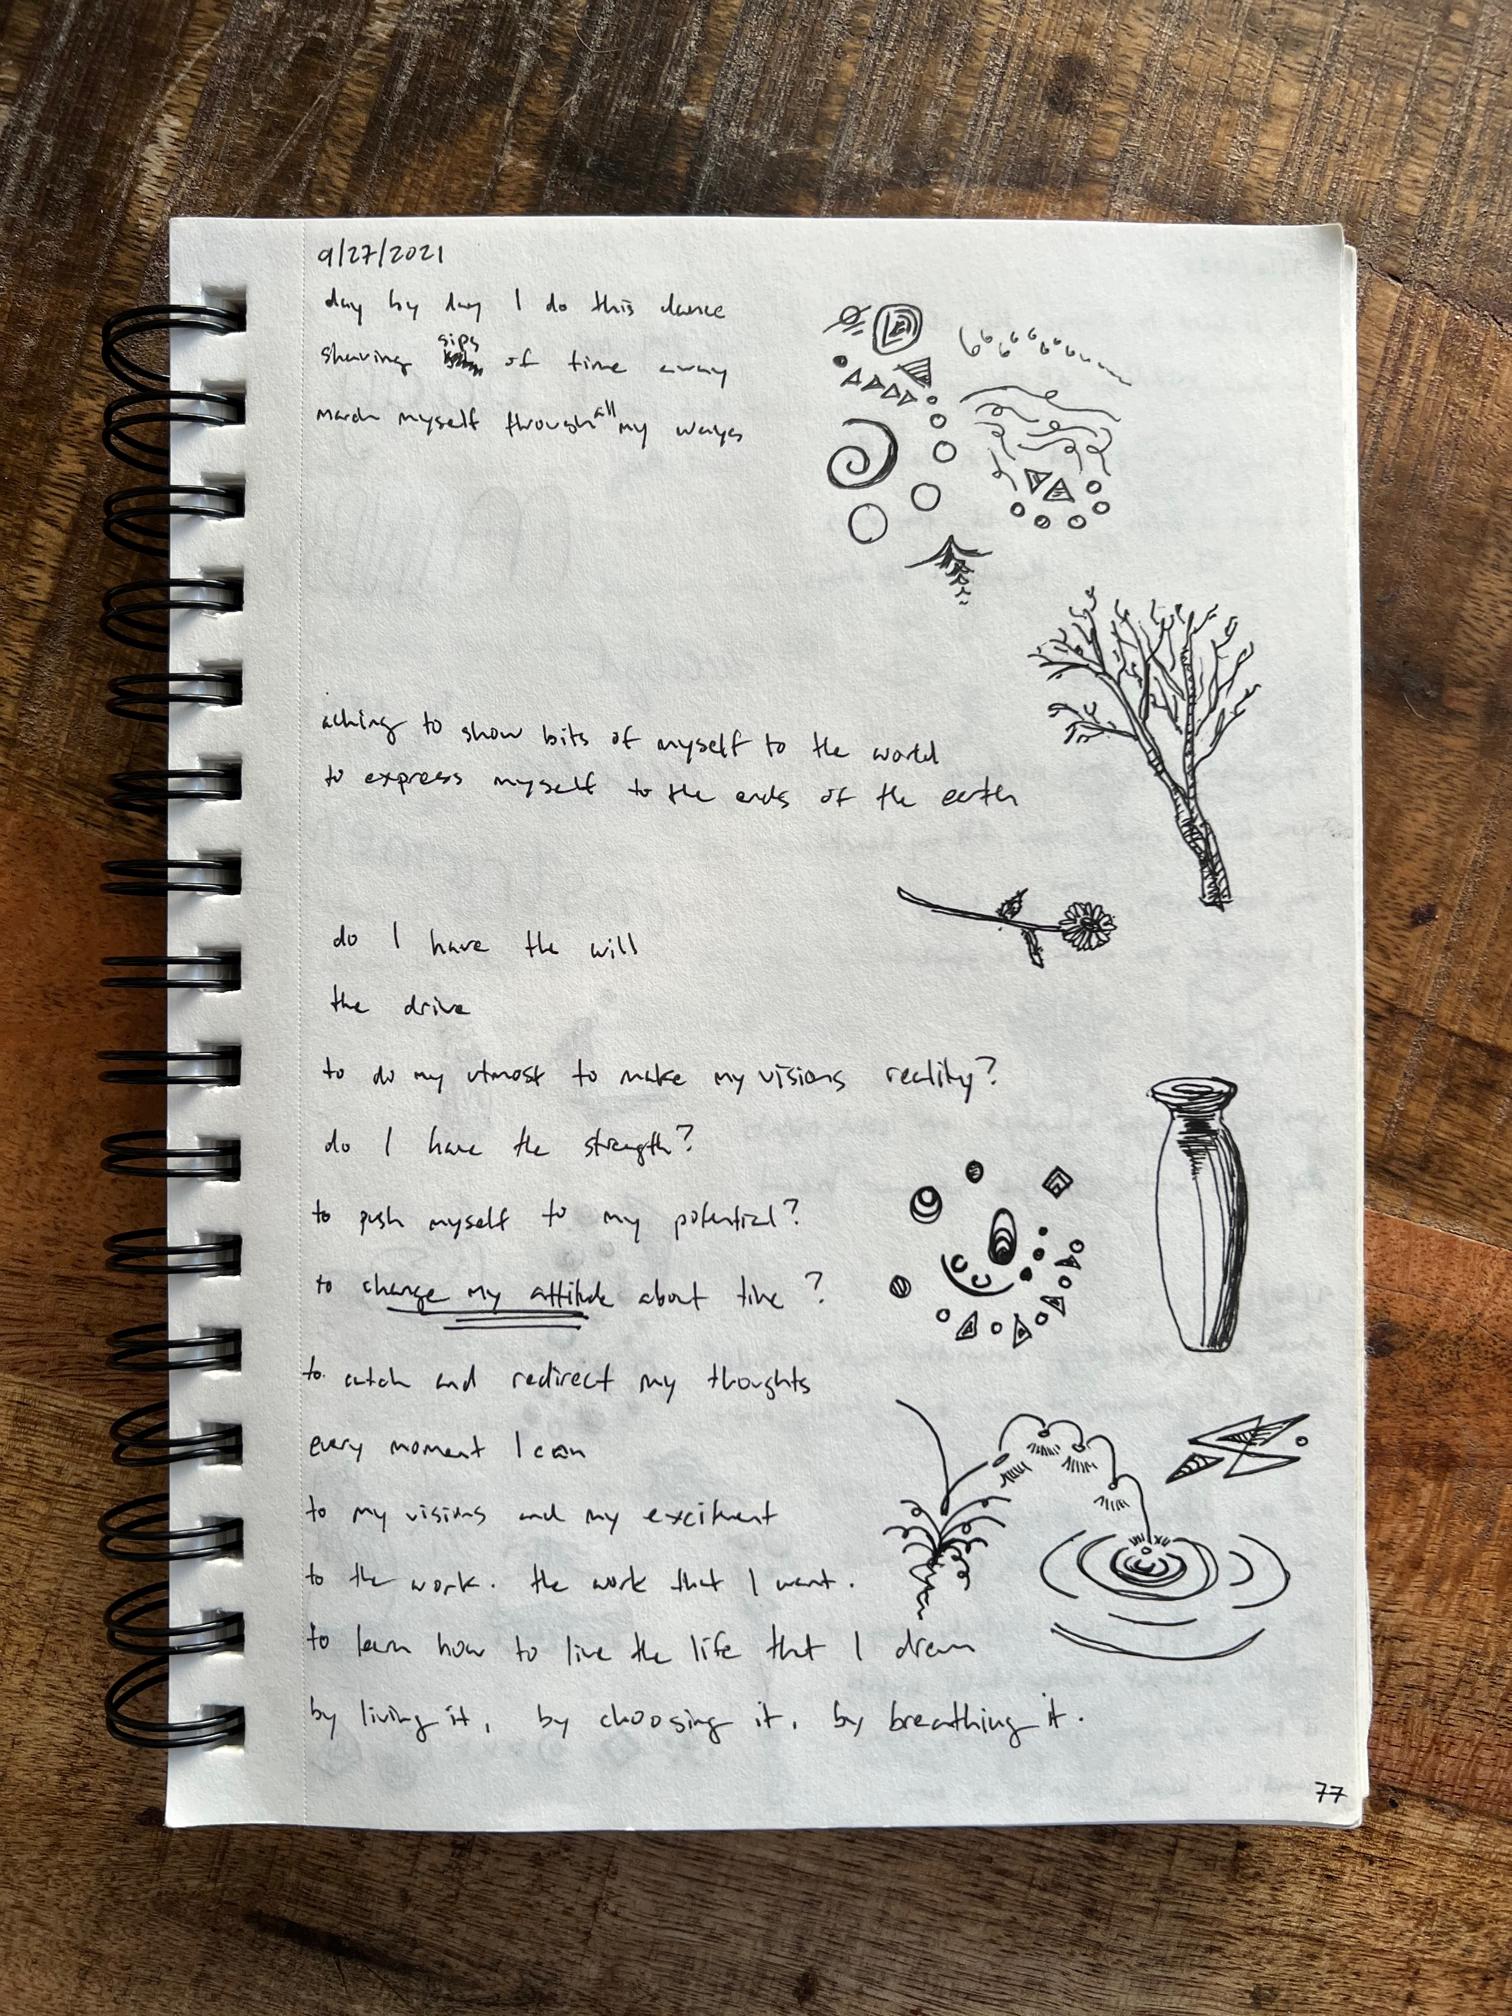 9/27/2021
day by day I do this dance
shaving sips of time away
march myself through all my ways
aching to show bits of myself to the world
to express myself to the ends of the earth
do I have the will
the drive
to do my utmost to make my visions reality?
do I have the strength?
to push myself to my potential?
to change my attitude about time?
to catch and redirect my thoughts
every moment I can
to my visions and my excitment
to the work. the work that I want.
to learn how to live the life that I dream
by living it, by choosing it, by breathing it.
77